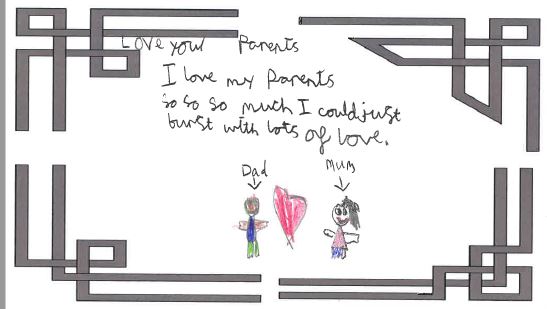 Love your Parents
I love my Parents
so so so much I could just
burst with lots of love.
Dad Mum